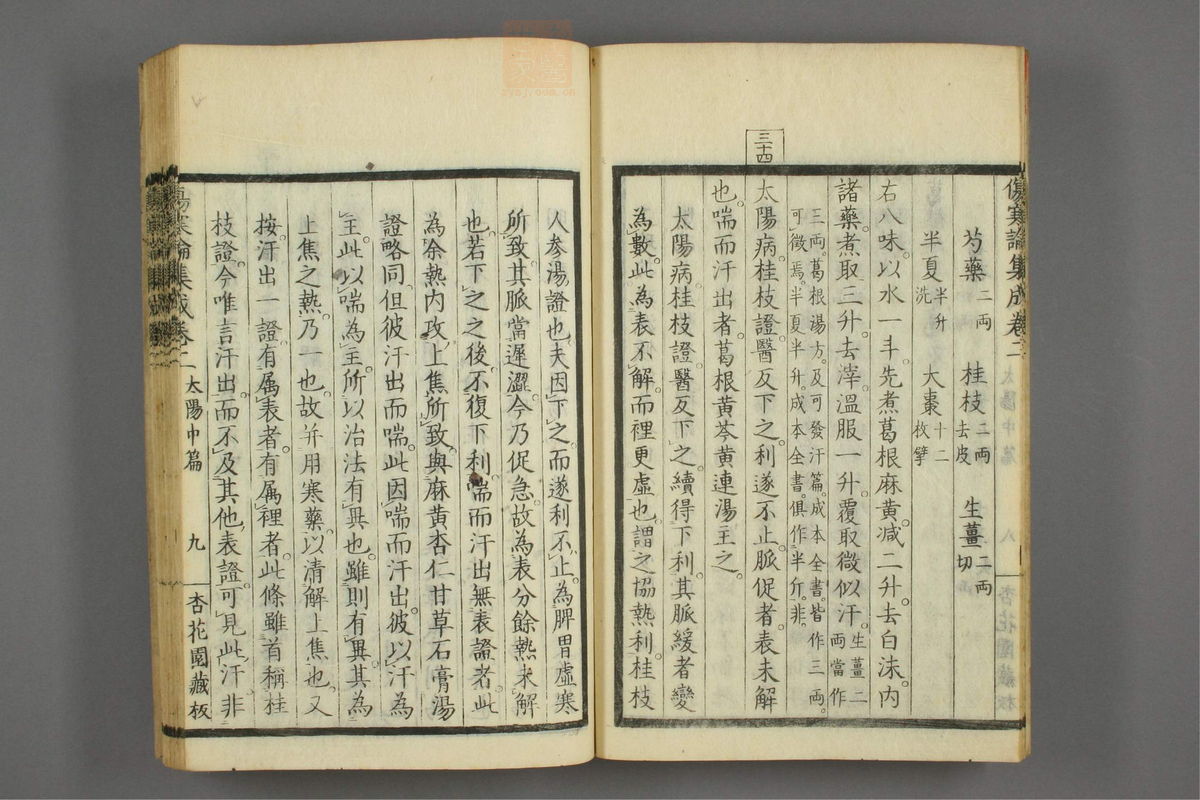 傷寒論集成卷二
芍藥二両　桂枝二両去皮　生薑二両切
半夏半升洗　大棗十二枚擘
右八味。以水一斗。先煮葛根麻黄。減二升。去白沫。内
諸藥。煮取三升。去滓。溫服一升。覆取微似汗。生薑二両當作
三両。葛根湯方。及可發汗篇。成本全書。皆作三両。可徵焉。半夏半升。成本全書。俱作半斤。非。
三十四
太陽病。桂枝證。醫反下之。利遂不止。脈促者。表未解
也。喘而汗出者。葛根黄芩黄連湯主之。
太陽病。桂枝證。醫反下之。續得下利。其脈緩者。變
為數。此為表不解。而裡更虛也。謂之協熱利。桂枝
人參湯證也。夫因下之。而遂利不止。為脾胃虛寒
所致。其脈當遲澀。今乃促急。故為表分餘熱未解
也。若下之之後。不復下利。喘而汗出。無表證者。此
為余熱内攻。上焦所致。與麻黄杏仁甘草石膏湯
證略同。但彼汗出而喘。此因喘而汗出。彼以汗為
主。此以喘為主。所以治法有異也。雖則有異。其為
上焦之熱。乃一也。故并用寒藥。以清解上焦也。又
按。汗出一證。有属表者。有属裡者。此條雖首稱桂
枝證。今唯言汗出。而不及其他表證。可見此汗非
傷寒論集成卷二　太陽中篇　九　杏花園藏板